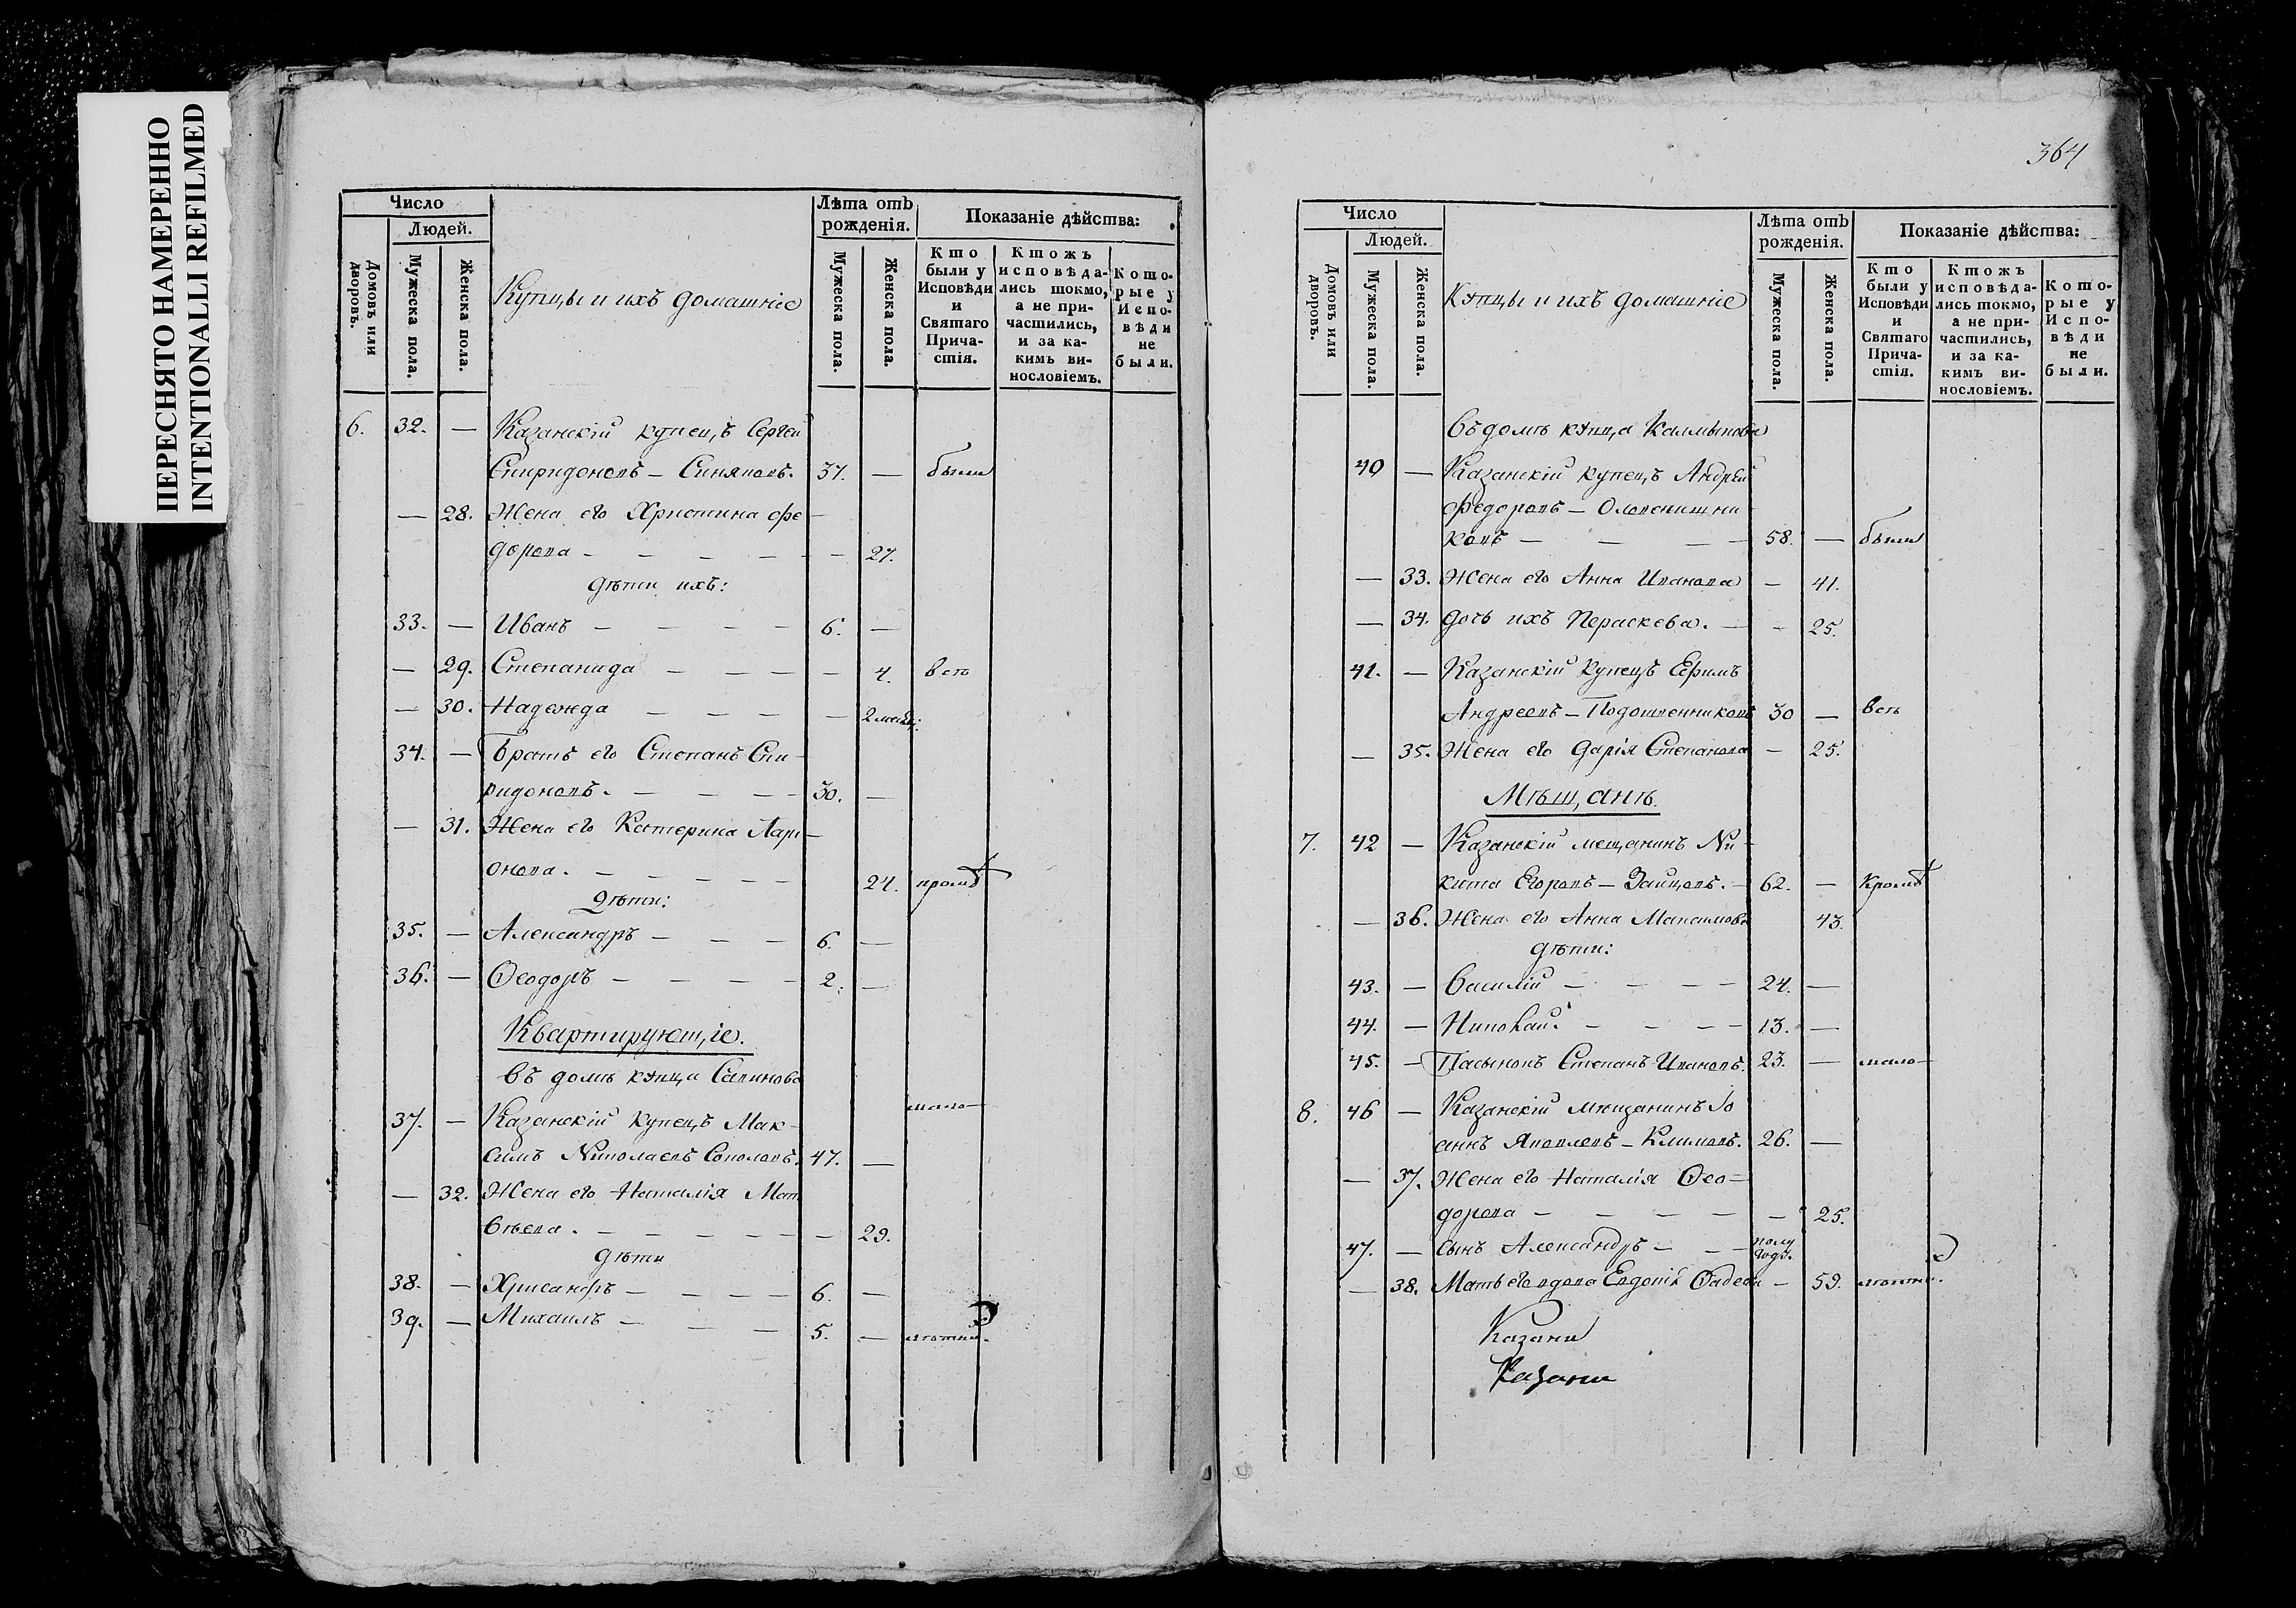 ПЕРЕСНЯТО НАМЕРЕННО
INTENTIONALLI REFILMED
Число
Людей.
Домовъ или дворовъ.
Мужеска пола.
Женска пола.
Купцы и ихъ домашніе
Лѣта отъ рожденія.
Мужеска пола.
Женска пола.
Показаніе дѣйства:
Кто были у Исповѣди и Святаго Причастія.
Ктожъ исповѣдались токмо, а не причастились, и за какимъ винословіемъ.
Которые у Исповѣди не были.
6. 32. — Казанскій купецъ Сергей
Спиридоновъ — Синяковъ. 37. — были
— 28. Жена его Христина Фе —
дорова — — — — — 27.
дѣти ихъ:
33. — Иванъ — — — — 6. —
— 29. Степанида — — — — 4. всѣ
— 30. Надежда — — — — 2 месяц:
34. — Братъ его Степанъ Спи-
ридоновъ. — — — — 30. —
— 31. Жена его Катерина Лари —
онова. — — — — — 24. кромѣ
Дѣти:
35. — Александръ — — — 6. —
36. — Ѳеодоръ — — — — 2. —
Квартирующіе.
въ домѣ купца Савинова
мало-
37. — Казанскій купецъ Мак-
симъ Николаевъ Соколовъ. 47. —
— 32. Жена его Наталія Мат
вѣева. — — — — — — 29.
дѣти
38. — Хрисанфъ — — — — 6. —
39. — Михаилъ — — — 5. — лѣтни.
364
Число
Людей.
Домовъ или дворовъ.
Мужеска пола.
Женска пола.
Купцы и ихъ домашніе
Лѣта отъ рожденія.
Мужеска пола.
Женска пола.
Показаніе дѣйства:
Кто были у Исповѣди и Святаго Причастія.
Ктожъ исповѣдались токмо, а не причастились, и за какимъ винословіемъ.
Которые у Исповѣди не были.
въ домѣ купца Калмыкова
40 — Казанскій купецъ Андрей
Федоровъ — Оловенишни
ковъ — — — — 58. — были
— 33. Жена его Анна Иванова — 41.
— 34. дочь ихъ Параскева. — — 25.
41. — Казанскій купецъ Ефимъ
Андреевъ — Подошвенниковъ 30 — всѣ
— 35. Жена его Дарія Степанова — 25.
Мѣщанѣ.
7. 42 — Казанскій мещанинъ Ни-
кита Егоровъ — Зайцовъ. — 62. — Кромѣ
— 36. Жена его Анна Максимова 43.
дѣти:
43. — Василій — — — — 24. —
44. — Николай. — — — — 13. —
45. — Пасынокъ Степанъ Ивановъ. 23. — мало-
8. 46 — Казанскій мѣщанинъ Іо
аннъ Яковлевъ — Климовъ. 26. —
— 37. Жена его Наталія Ѳео-
дорова — — — — — 25.
47. — сынъ Александръ — — — полу года.
— 38. Мать его вдова Евдокія Фадеева — 59. лѣтни.
Казани
Казани